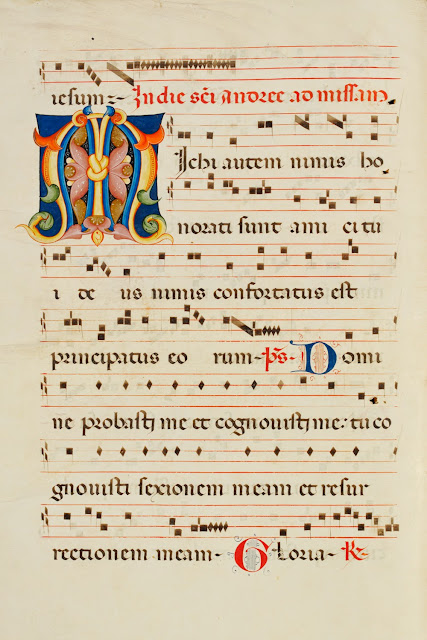 iesum. In die sc̄i andree ad missam
Michi autem nimis ho
norati sunt ami ci tu
i de us nimis confortatus est
principatus eo rum. ps. Domi
ne probasti me et cognouisti me: tu co
gnouisti sexionem meam et resur
rectionem meam. Gloria. R.